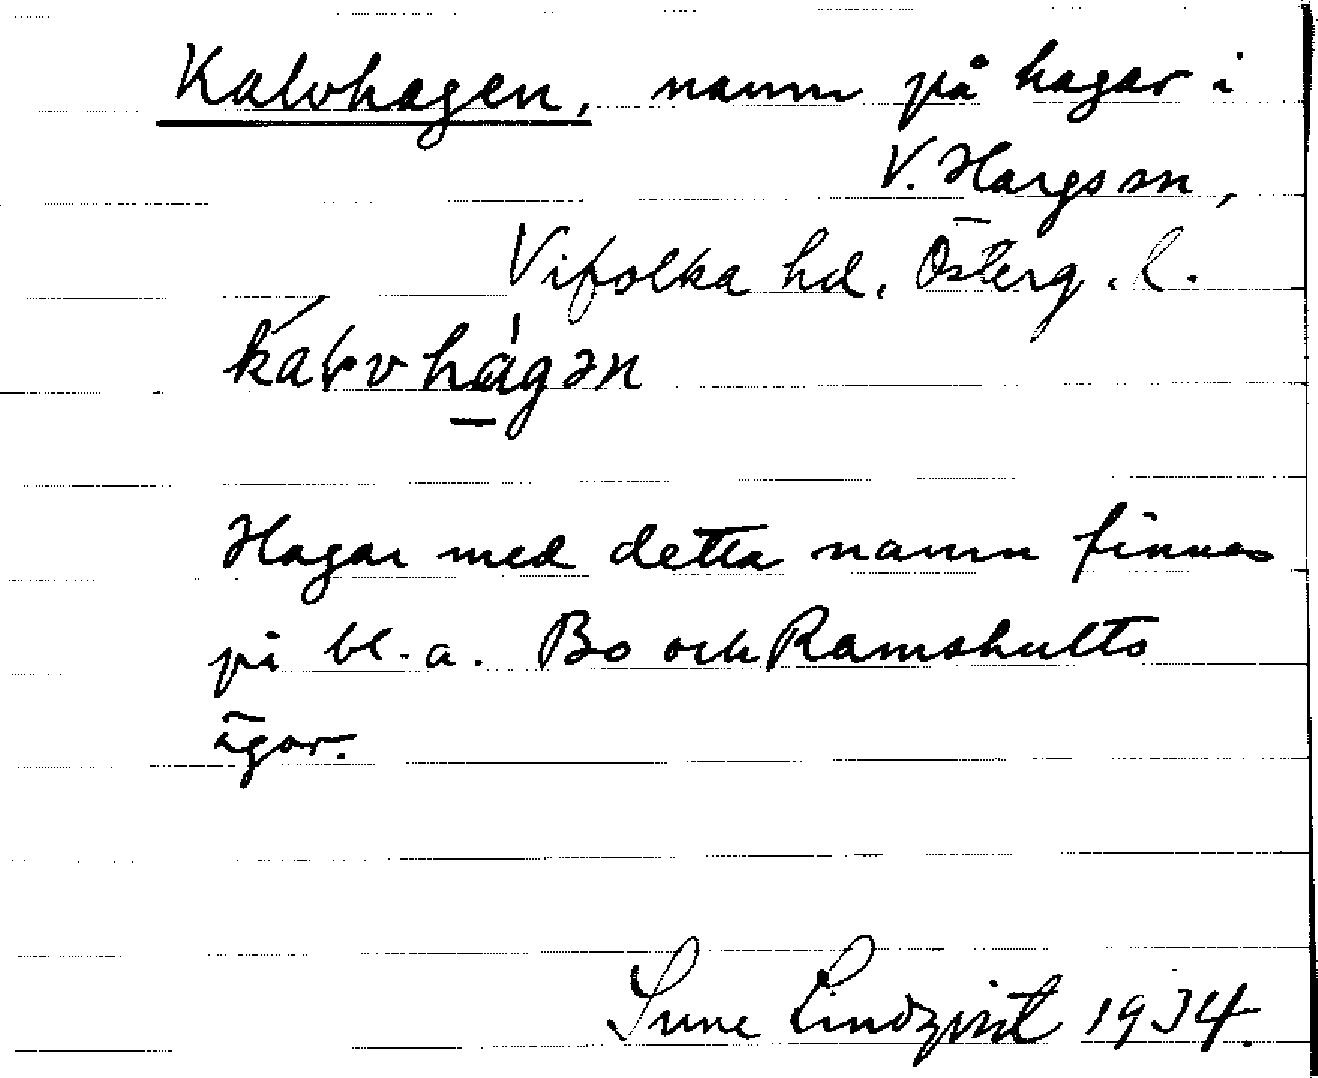 Kalvhagen, namn på hagar i
V. Hargs sn,
Vifolka hd, Österg. l.
Hagar med detta namn finnas
på bl.a. Bo och Ramshults
ägor.
Sune Lindqvist 1934.